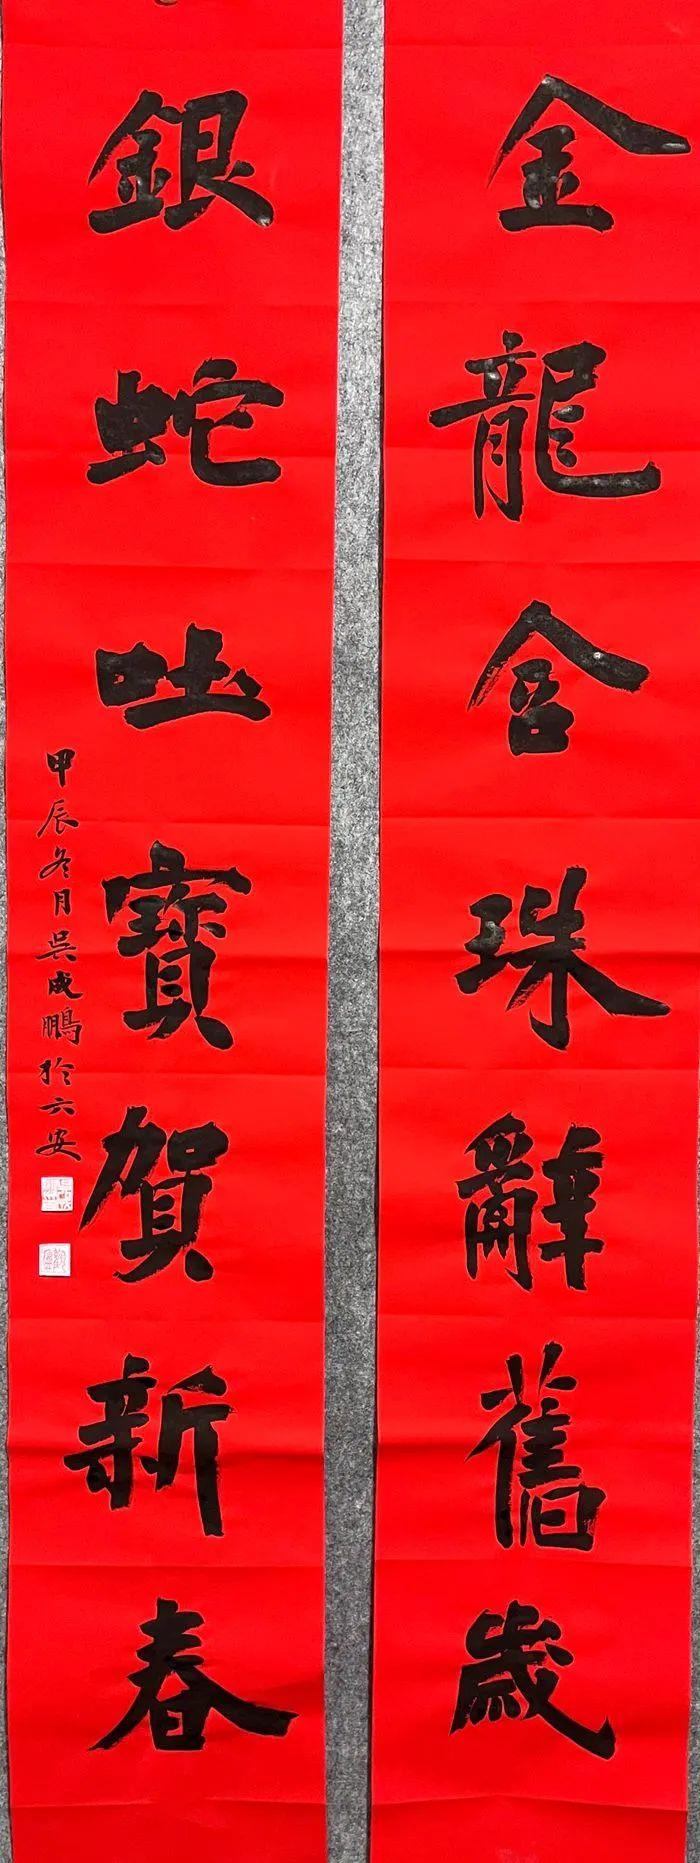 金龍含珠辭舊歲
銀蛇吐寶賀新春
甲辰冬月吳成鵬於六安